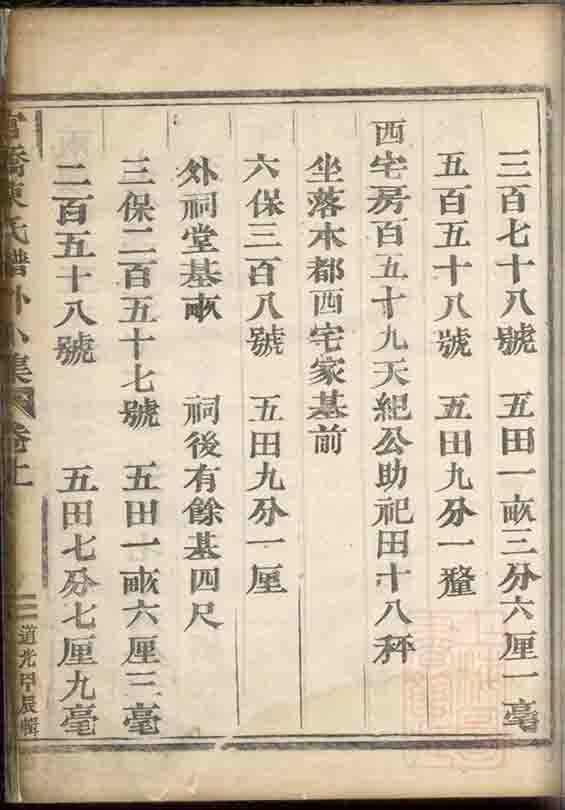 三百七十八號　五田一畝三分六厘一毫
五百五十八號　五田九分一釐
西宅房百五十九天紀公助祀田十八秤
坐落本都西宅家基前
六保三百八號　五田九分一厘
外祠堂基畝　祠後有餘基四尺
三保二百五十七號　五田一畝六厘三毫
二百五十八號　五田七分七厘九毫
橋陳氏譜外小集　卷上
道光甲辰輯